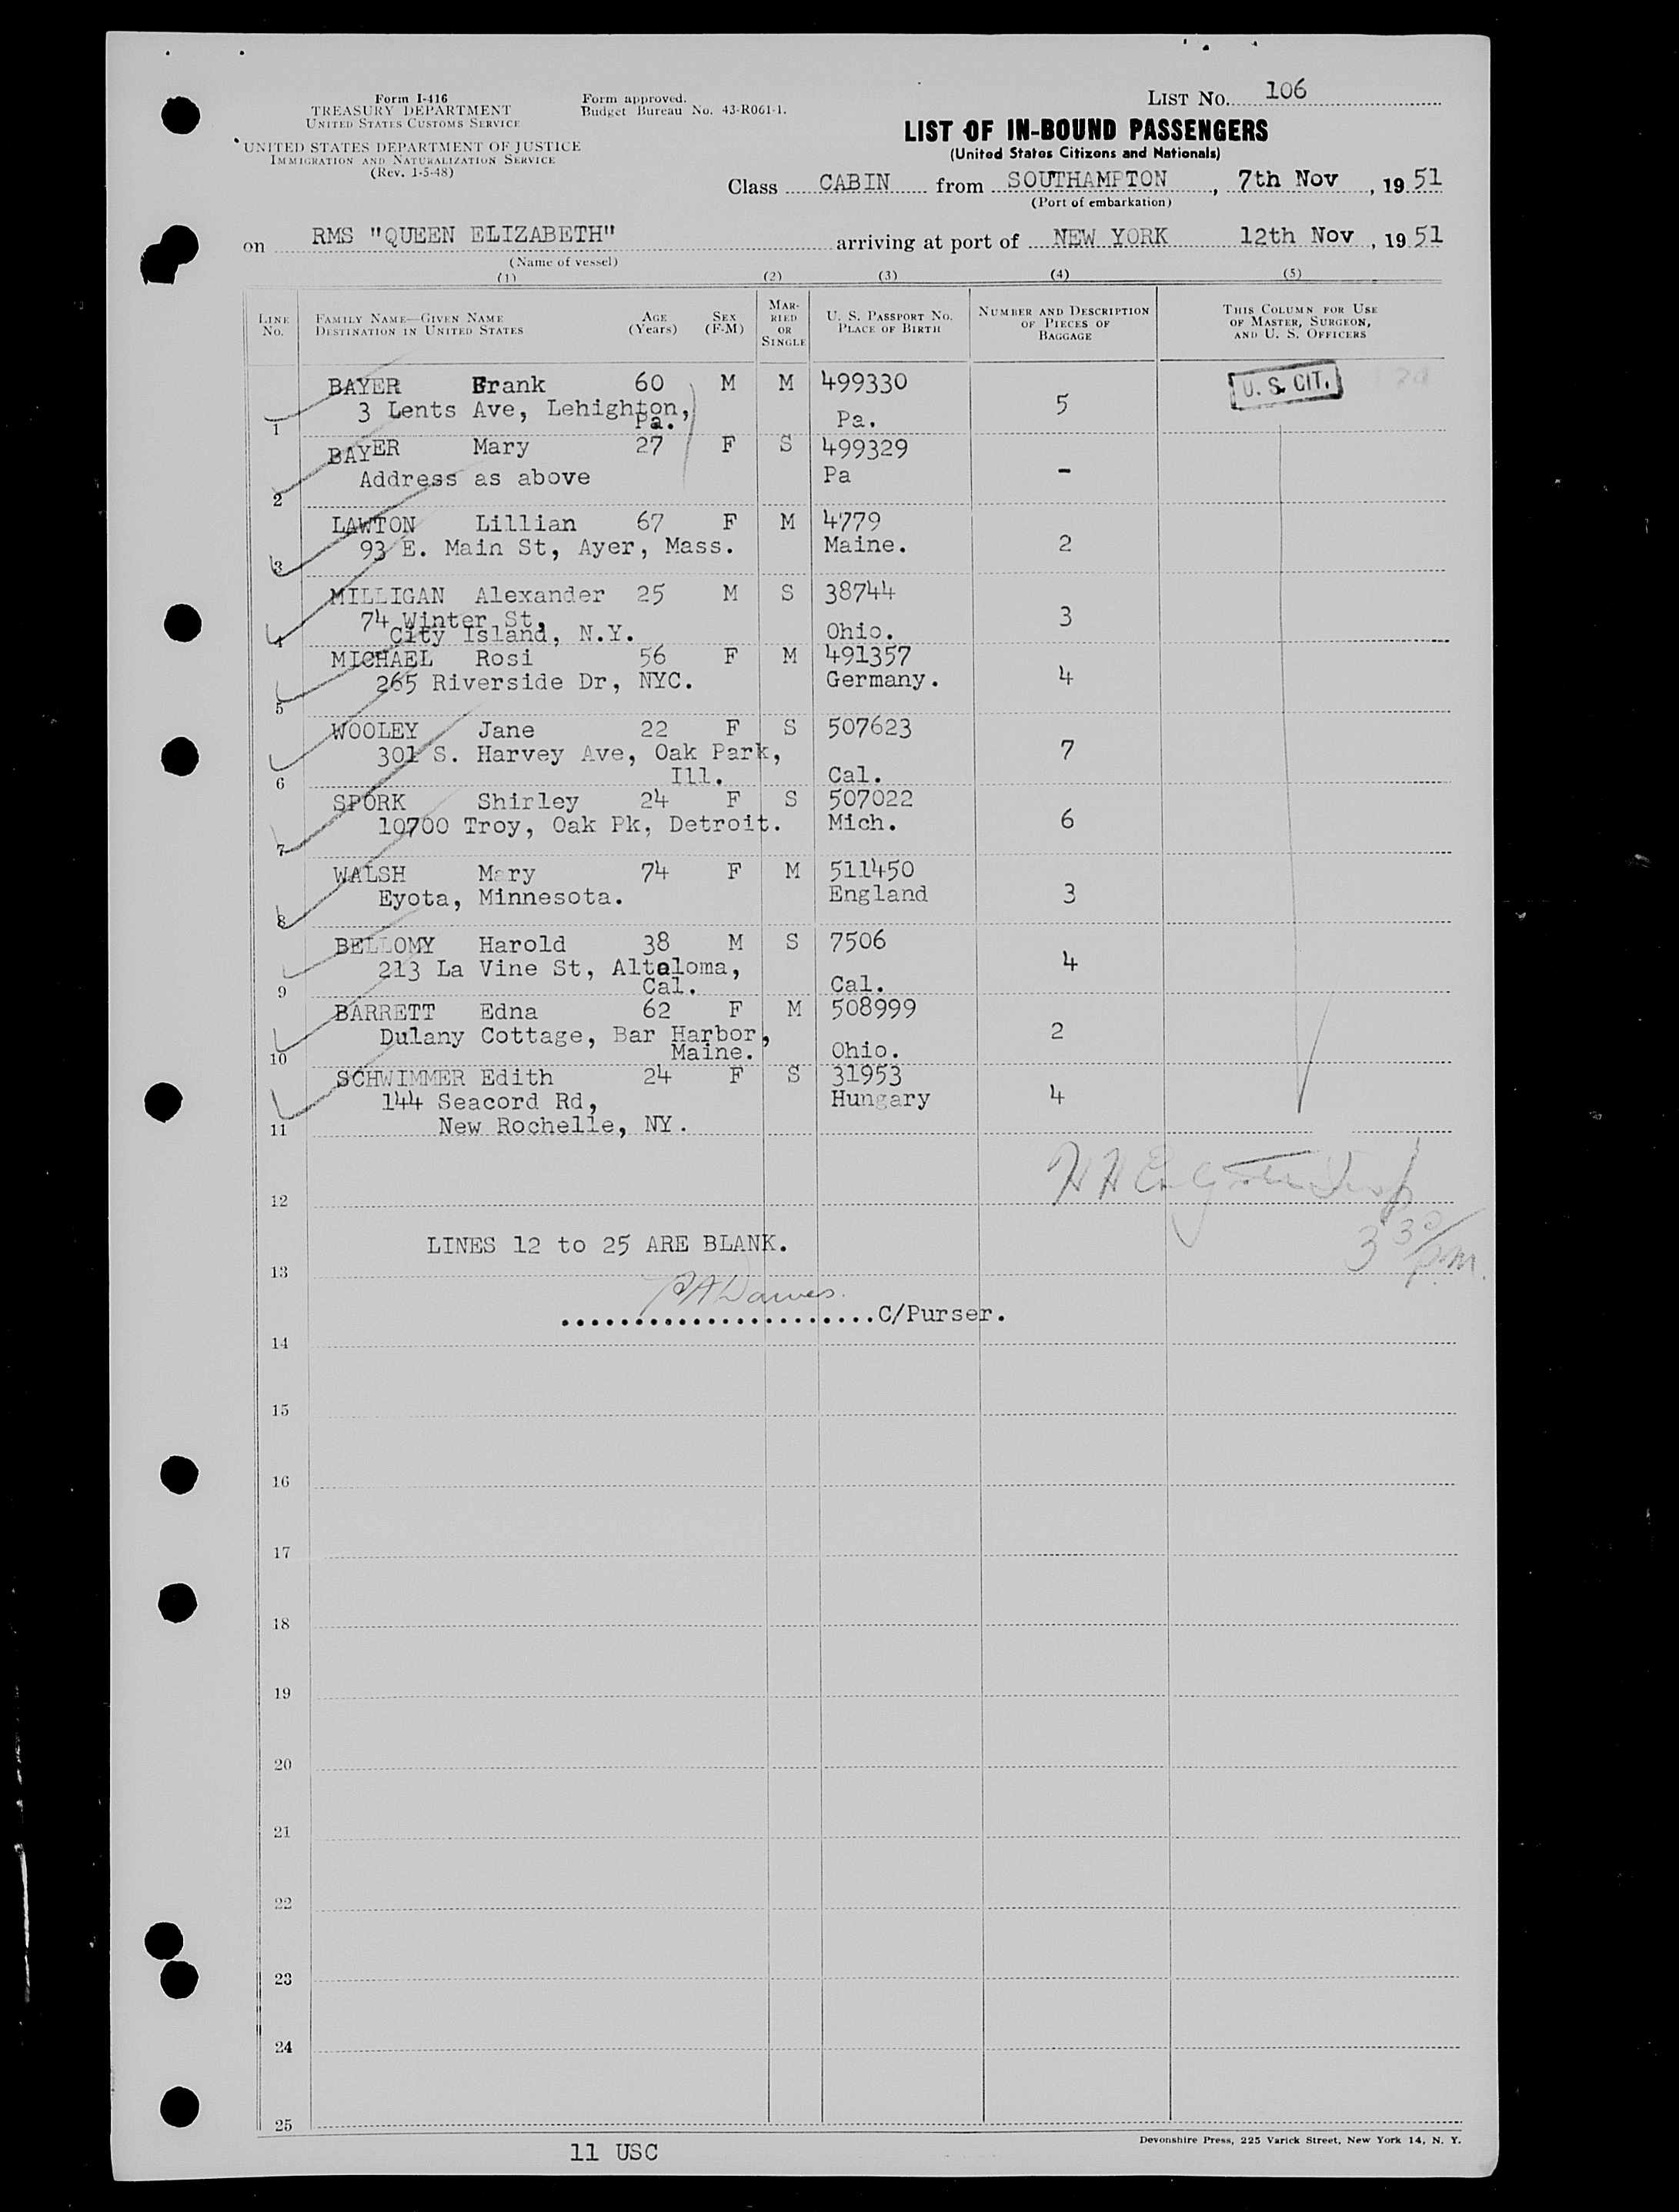 Form I-416
TREASURY DEPARTMENT
UNITED STATES CUSTOMS SERVICE
UNITED STATES DEPARTMENT OF JUSTICE
IMMIGRATION AND NATURALIZATION SERVICE
(Rev. 1-5-48)
Form approved.
Budget Bureau No. 43-R061-1.
LIST No. 106
LIST OF IN-BOUND PASSENGERS
(United States Citizens and Nationals)
Class CABIN from SOUTHAMPTON, 7th Nov, 19 51
(Port of embarkation)
on RMS "QUEEN ELIZABETH" arriving at port of NEW YORK 12th Nov, 19 51
(Name of vessel)
(1) (2) (3) (4) (5)
LINE No. FAMILY NAME—GIVEN NAME DESTINATION IN UNITED STATES AGE (Years) SEX (F-M) MARRIED OR SINGLE U. S. PASSPORT No. PLACE OF BIRTH NUMBER AND DESCRIPTION OF PIECES OF BAGGAGE THIS COLUMN FOR USE OF MASTER, SURGEON, AND U. S. OFFICERS
BAYER Frank 60 M M 499330 U. S. CIT.
3 Lents Ave, Lehighton, 5
1 Pa. Pa.
BAYER Mary 27 F S 499329
2 Address as above Pa -
LAWTON Lillian 67 F M 4779
3 93 E. Main St, Ayer, Mass. Maine. 2
MILLIGAN Alexander 25 M S 38744
74 Winter St, 3
4 City Island, N.Y. Ohio.
MICHAEL Rosi 56 F M 491357
5 265 Riverside Dr, NYC. Germany. 4
WOOLEY Jane 22 F S 507623
301 S. Harvey Ave, Oak Park, 7
6 Ill. Cal.
SPORK Shirley 24 F S 507022
7 10700 Troy, Oak Pk, Detroit. Mich. 6
WALSH Mary 74 F M 511450
8 Eyota, Minnesota. England 3
BELLOMY Harold 38 M S 7506
213 La Vine St, Altaloma, 4
9 Cal. Cal.
BARRETT Edna 62 F M 508999
Dulany Cottage, Bar Harbor, 2
10 Maine. Ohio.
SCHWIMMER Edith 24 F S 31953
144 Seacord Rd, Hungary 4
11 New Rochelle, NY.
12
LINES 12 to 25 ARE BLANK.
3 30/pm.
13
PA Dawes.
C/Purser.
14
15
16
17
18
19
20
21
22
23
24
25
11 USC
Devonshire Press, 225 Varick Street, New York 14, N. Y.